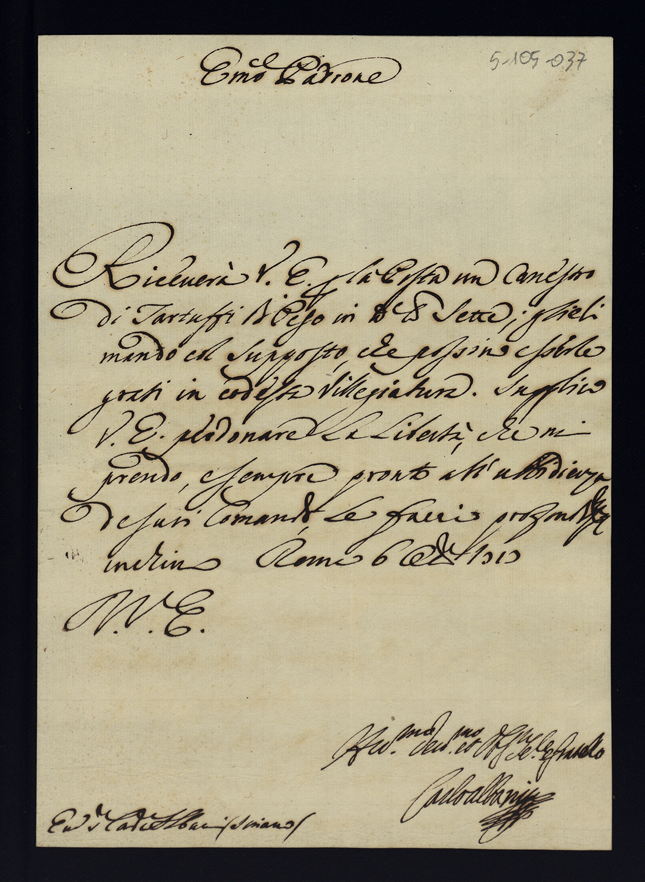 5-105-037
Em.o Padrone
Riceverà V. E. p la Posta un Canestro
di Tartuffi Peso in Sette; glieli
mando col supposto che possino esserle
grati in codesta Villegiatura. Supplico
V. E. perdonare La Libertà, che mi
prendo, e sempre pronto all'ubbidienza
de suoi Comandi Le faccio
inchino Roma 6
V. E.
Carlo Albani
Em.o Card.e Albani